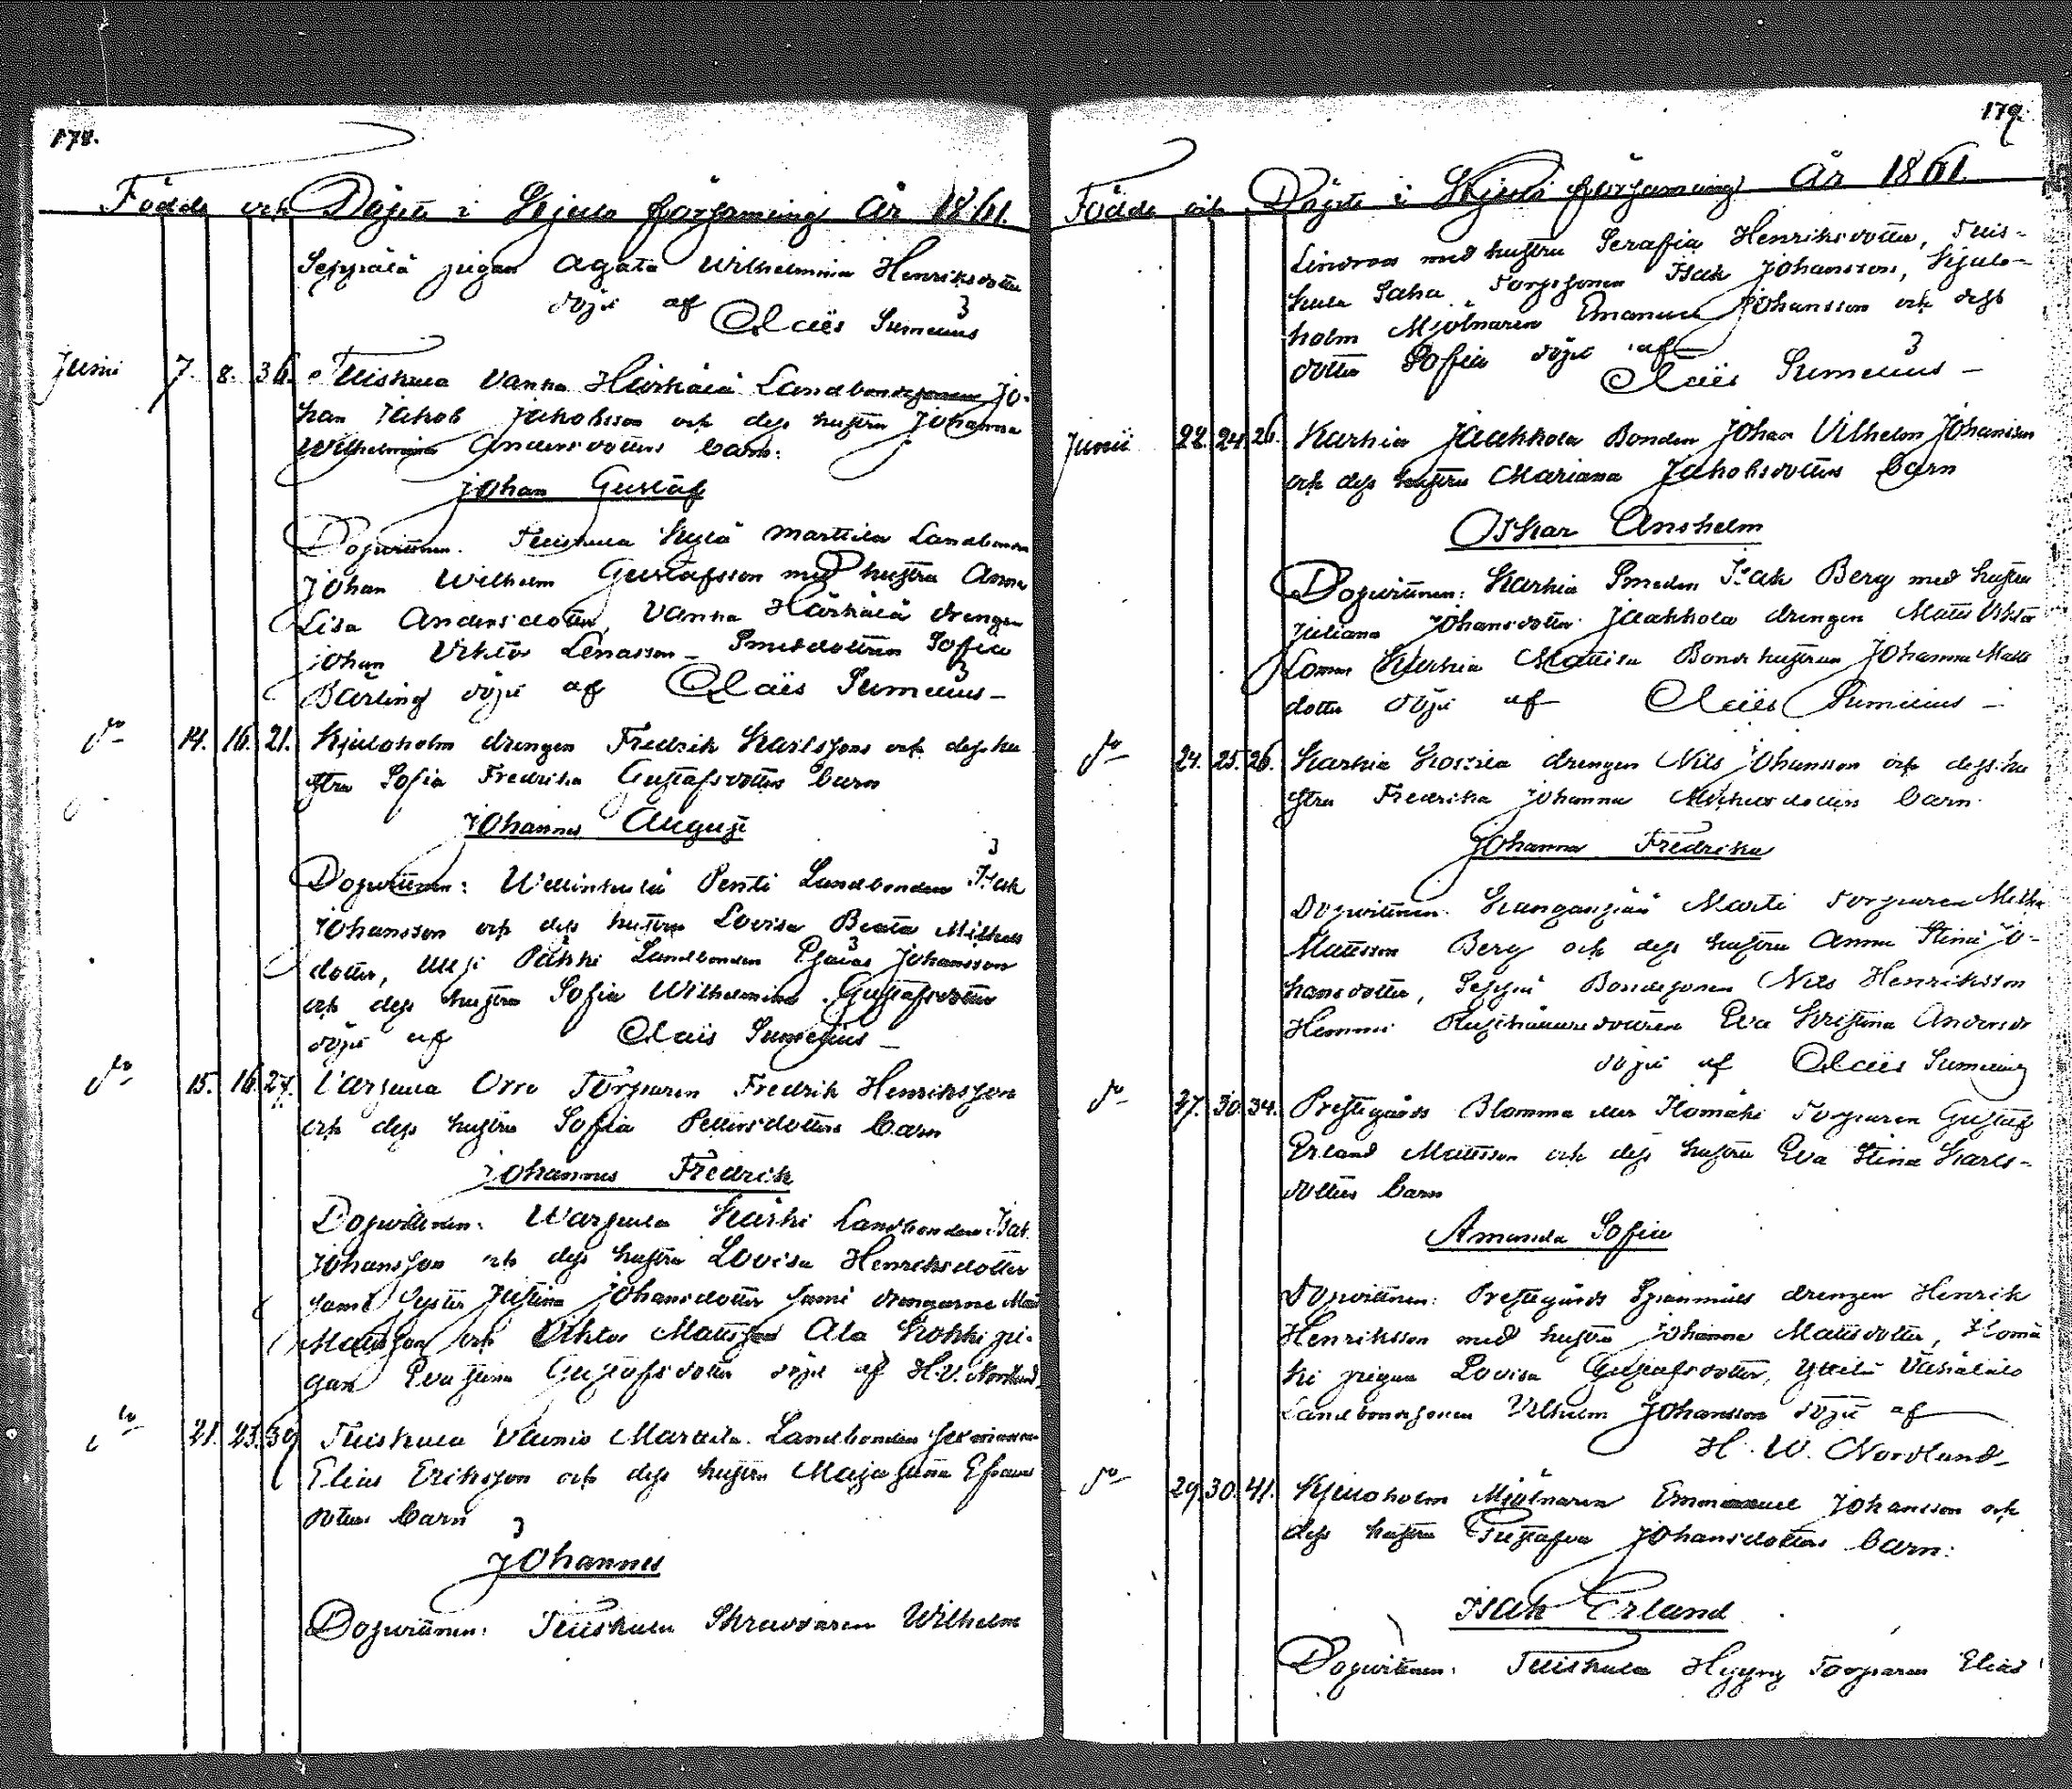 178.
Födde och Döpte i Kjulo församling År 1861.
Seppälä pigan Agata Wilhelmina Henriksdotter
döpt af Claës Sumelius
Junii 7. 8. 36. Tuiskula Vanha Härkälä Landbondesonen Jo-
han Jakob Jakobsson och dess hustru Johanna
Wilhelmina Andersdotters barn:
Johan Gustaf
Dopvittnen. Tuiskula Kylä Marttila Landbonden
Johan Wilhelm Gustafsson med hustru Anna
Lisa Andersdotter, Vanha Härkälä drengen
Johan Viktor Lenasson Smedsdottren Sofia
Bärling döpt af Claës Sumelius
do 14. 16. 21. Kjuloholm drengen Fredrik Karlssons och dess hu
stru Sofia Fredrika Gustafsdotters barn
Johannes August
Dopvittnen: Wellinkylä Penti Landbonden Isak
Johansson och dess hustru Lovisa Beata Mikels
dotter, Landbonden Esaias Johansson
och dess hustru Sofia Wilhelmina Gustafsdotter
döpt af Claës Sumelius
do 15. 16. 27. Orro Torparen Fredrik Henriksson
och dess hustru Sofia Pettersdotters barn
Johannes Fredrik
Dopvittnen: Karhi Landbonden Isak
Johansson och dess hustru Lovisa Henriksdotter
samt Syster Justina Johansdotter samt drengarne Matts
Mattsson och Viktor Mattsson Ala Kokki pi-
gan Eva Stina Gustafsdotter döpt af H. W. Nordlund
do 21. 23. 39 Tuiskula Vainio Marttila Landbonden
Elias Eriksson och dess hustru Maja Stina Efraims
dotters barn
Johannes
Dopvittnen: Tuiskula Skräddaren Wilhelm
179
Födde och Döpte i Kjulo församling År 1861.
Lindroos med hustru Serafia Henriksdotter, Tuis-
kula Saha Torpsonen Isak Johansson, Kjulo-
holm Mjölnaren Emanuel Johansson och dess
dotter Sofia döpt af
Claës Sumelius
Junii 22. 24. 26. Karhia Jaakkola Bonden Johan Vilhelm Johansson
och dess hustru Mariana Jakobsdotters barn
Oskar Anshelm
Dopvittnen: Karhia Smeden Isak Berg med hustru
Juliana Johansdotter Jaakkola drengen Matts Viktor
Karhia Mattila Bonde hustrun Johanna Matts
dotter döpt af Claës Sumelius
do 24. 25. 26. Karhia drengen Nils Johansson och dess hu
stru Fredrika Johanna Mickelsdotters barn
Johanna Fredrika
Dopvittnen: Kangaspää Marti Torparen Mikel
Mattsson Berg och dess hustru Anna Stina Jo-
hansdotter, Seppä Bondesonen Nils Henriksson
Hemmi Rusthållaredottren Eva Kristina Andersdr
döpt af Claës Sumelius
do 27. 30. 34. Prestegårds Blomma eller Ilomäki Torparen Gustaf
Erland Mattsson och dess hustru Eva Stina Karls-
dotters barn
Amanda Sofia
Dopvittnen: Prestegårds drengen Henrik
Henriksson med hustru Johanna Mattsdotter, Ilomä
ki pigan Lovisa Gustafsdotter, Yttilä
Landbondesonen Vilhelm Johansson döpt af
H. W. Nordlund
do 29. 30. 41. Kjuloholm Mjölnaren Emmanuel Johansson och
dess hustru Gustafva Johansdotters barn:
Isak Erland
Dopvittnen: Tuiskula Hyypy Torparen Elias